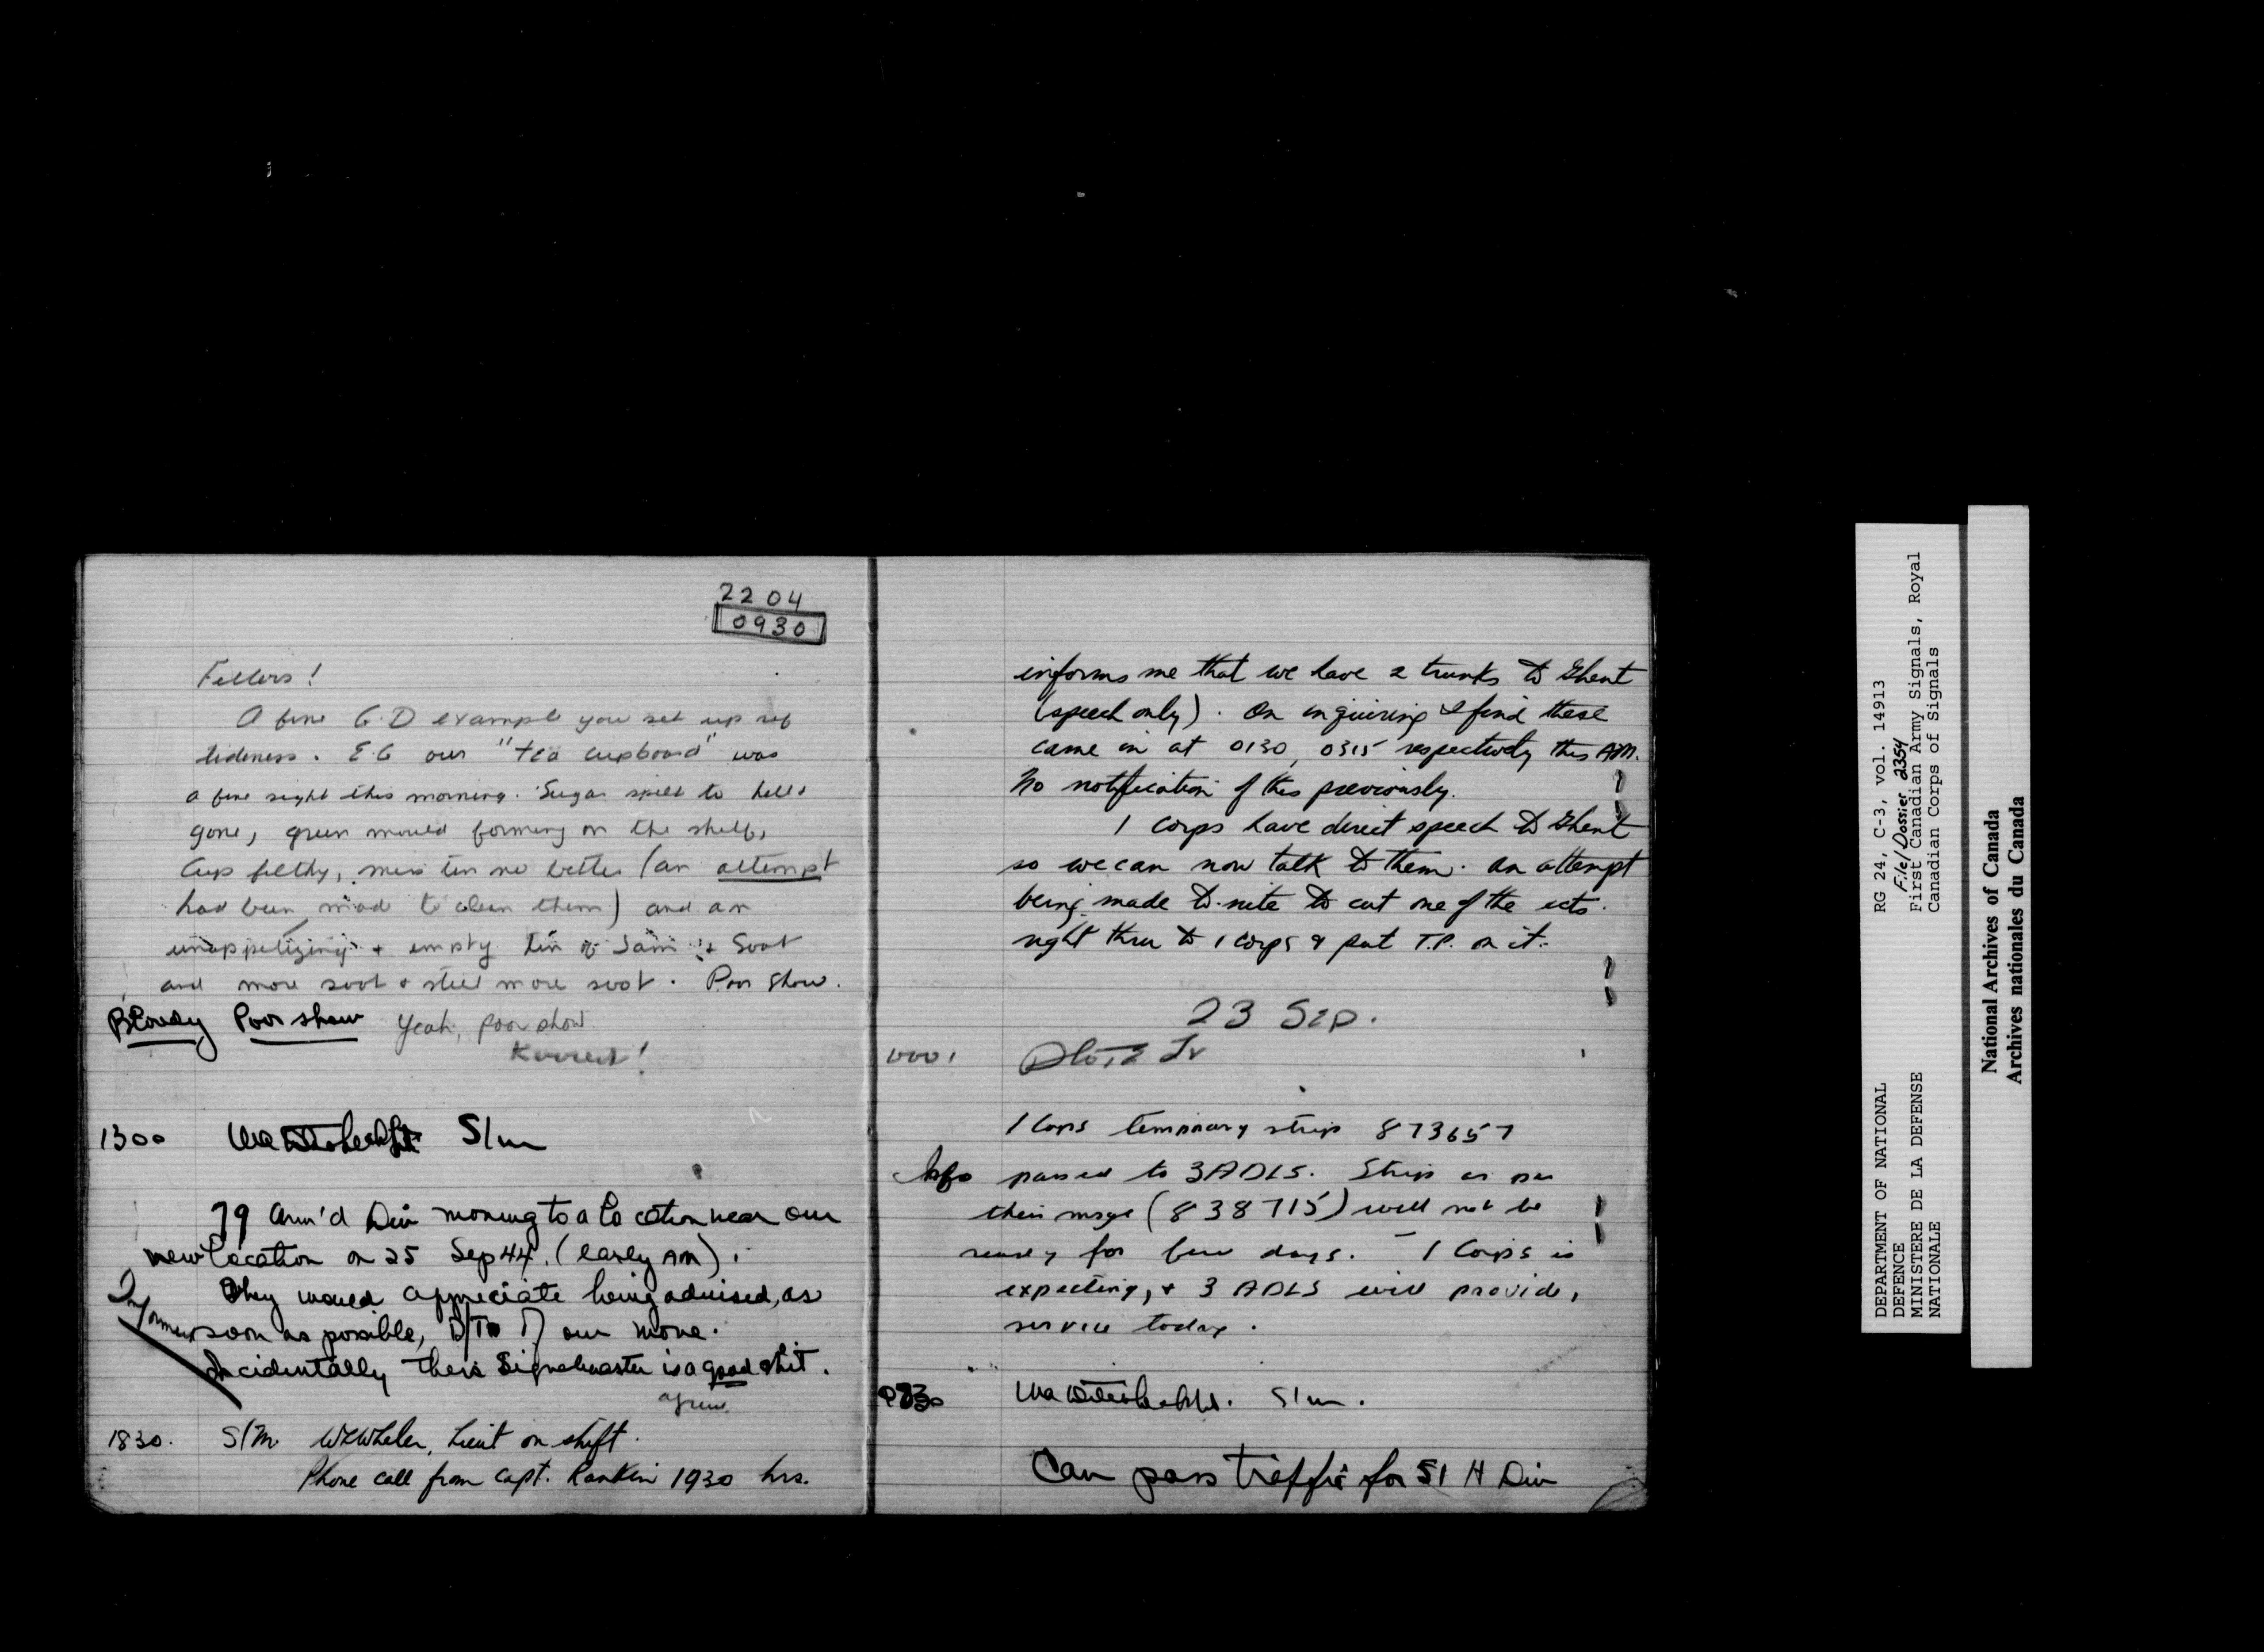 2204
0930
Fellers!
A fine G.D example you set up ref
tideness. E.G our "tea cupboard" was
a fine sight this morning. Sugar spilt to hell &
gone, green mould forming on the shelf,
Cup filthy, mess tin no better (an attempt
had been mad to clean them) and an
unappetizing & empty tin of Jam & Soot
and more soot & still more soot. Poor Show.
Bloody Poor show Yeah, poor show
Korrect!
1300 S/m
79 Arm'd Div moving to a location near our
new location on 25 Sep 44. (early AM).
They would appreciate being advised, as
soon as possible, D/T of our move.
Incidentally their Signalmaster is a good shit.
agree
1830. S/M. Lieut on shift.
Phone call from Capt. Rankin 1930 hrs.
informs me that we have 2 trunks to Ghent
(speech only). On inquiring I find these
came in at 0130, 0315 respectively this AM.
No notification of this previously.
1 Corps have direct speech to Ghent
so we can now talk to them. An attempt
being made to-nite to cut one of the ccts.
right thru to 1 Corps & put T.P. on it.
23 Sep.
0001
1 Corps temporary strip 873657
Info passed to 3 ADLS. Strip as per
their msge (838715) will not be
ready for few days. - 1 Corps is
expecting, & 3 ADLS will provide,
service today.
0830 S/m.
Can pass traffic for 51 H Div
DEPARTMENT OF NATIONAL DEFENCE
MINISTERE DE LA DEFENSE NATIONALE
RG 24, C-3, vol. 14913
File/Dossier 2354
First Canadian Army Signals, Royal
Canadian Corps of Signals
National Archives of Canada
Archives nationales du Canada